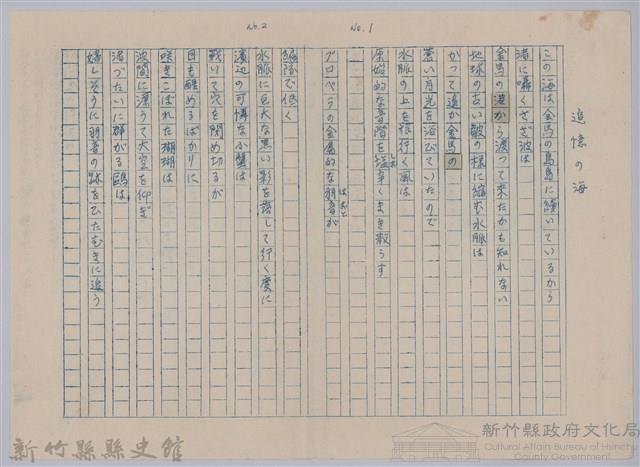 No.1
追憶の海
この海は金馬の島島に續いているから
渚に囁くさざ波は
金馬の渚から渡って来たかも知れない
地球の古い皺の様に縮む水脈は
かつて遠か金馬の
蒼い月光を浴びていたので
水脈の上を旅行く風は
原始的な音階を塩辛くまき散らす
プロペラの金属的な羽音が
はおと
No.2
編隊で低く
水脈に巨大な黒い影を落して行く度に
濱辺の可憐な小蟹は
戦いて穴を閉め切るが
目も醒めるばかりに
咲きこぼれた珊瑚は
波間に漂うて大空を仰ぎ
渚づたいに群がる鴎は
嬉しそうに羽音の跡をひたむきに追う
新竹縣縣史館
新竹縣政府文化局
Cultural Affairs Bureau of Hsinchu
County Government